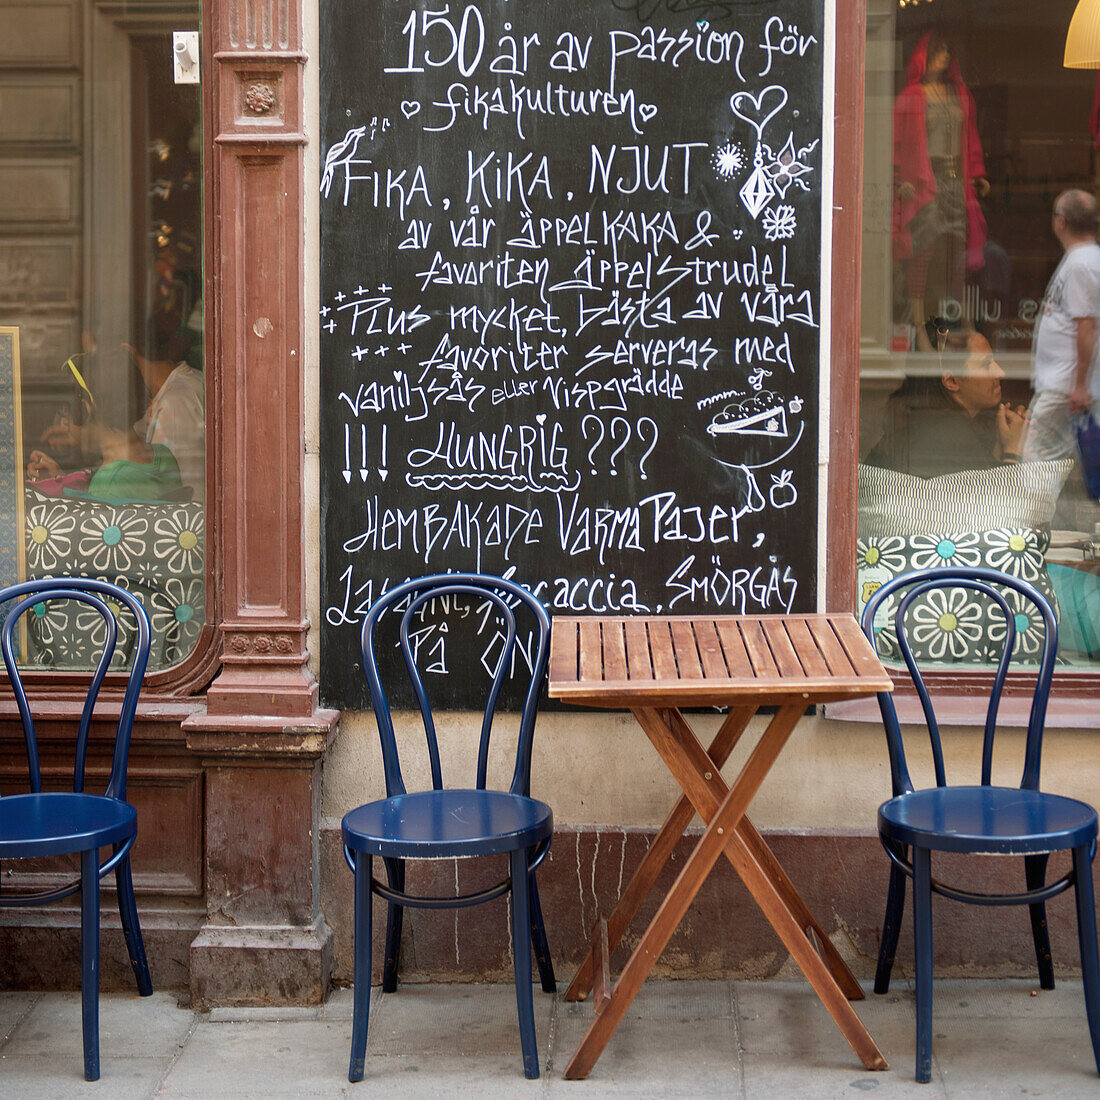 150 år av passion för
fikakulturen
FIKA, KIKA, NJUT
av vår äppelKAKA &
favoriten äppelstrudel
Plus mycket, bästa av våra
favoriter serveras med
vaniljsås eller vispgrädde
mmm...
!!! HUNGRIG ???
HEMBAKADE VARMA PAJER,
Lasagne, Focaccia, SMÖRGÅS
PÅ
ulla